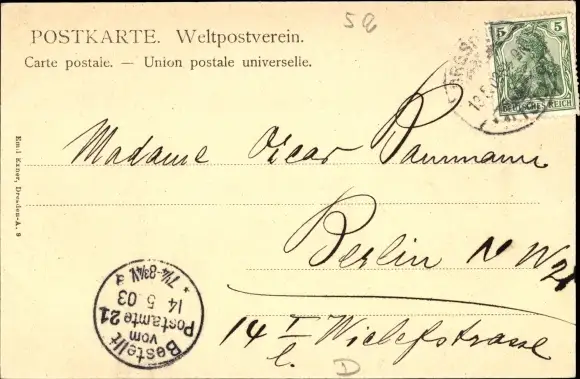 5 a
POSTKARTE. Weltpostverein.
Carte postale. — Union postale universelle.
5 5
DEUTSCHES REICH
Madame Oscar Baumann
Berlin N W 21
14 I Wiclefstrasse
l.
D
Bestellt
vom
Postamte 21
14 5. 03
7¼-8¾N
Emil Kaner, Dresden-A. 9